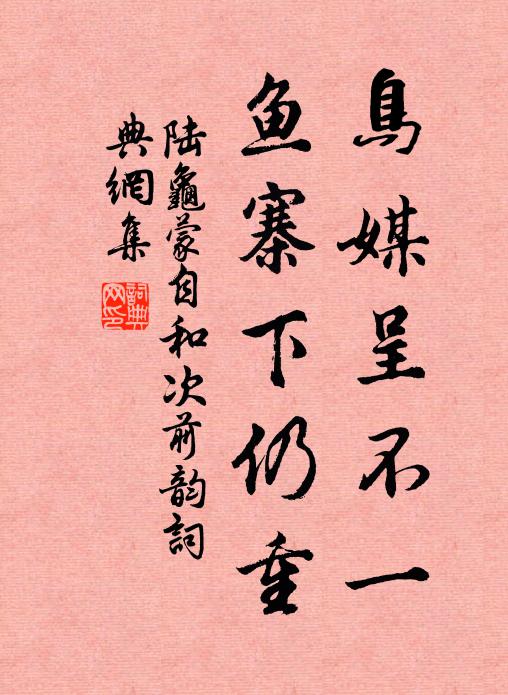 鳥媒呈不一
鱼寨下仍重
陆龜蒙自和次前韵詞
典網集
詞典网印